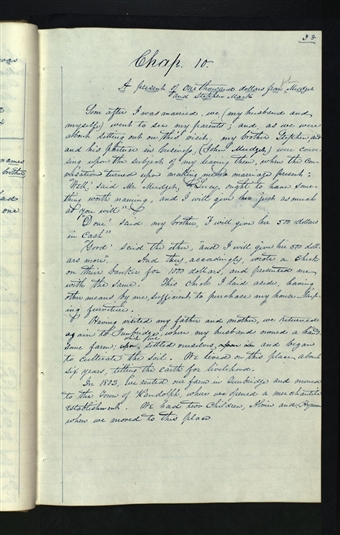 Chap. 10.
A present of one thousand dollars from Mudget
and Stephen Mack
Soon after I was married, we (my husband and
myself) went to see my parents; and as we were
about setting out on this visit, my brother Stephen, and
and his partner in business, (John Mudget) were conver-
sing upon the subject of my leaving them, when the con-
versation turned upon making me a marriage present:
"Well," said Mr Mudget, "Lucy ought to have some-
thing worth naming, and I will give her just as much
as you will"
"Done" said my brother, "I will give her 500 dollars
in Cash"
"Good" said the other, and I will give her 500 dol-
lars more". And they, accordingly, wrote a check
on their Banker for 1000 dollars, and presented me
with the same. This Check I laid aside, having
other means by me, sufficient to purchase my house keep-
ing furniture.
Having visited my father and mother, we returned
again to Tunbridge, where my husband owned a hand-
some farm; upon which we settled ourselves, and began
to cultivate the soil. We lived on this place, about
six years, tilling the earth for livelihood.
In 1802, we rented our farm in Tunbridge and moved
to the Town of Randolph, where we opened a merchantile
establishment. We had two Children, Alvin and Hyrum
when we moved to this place